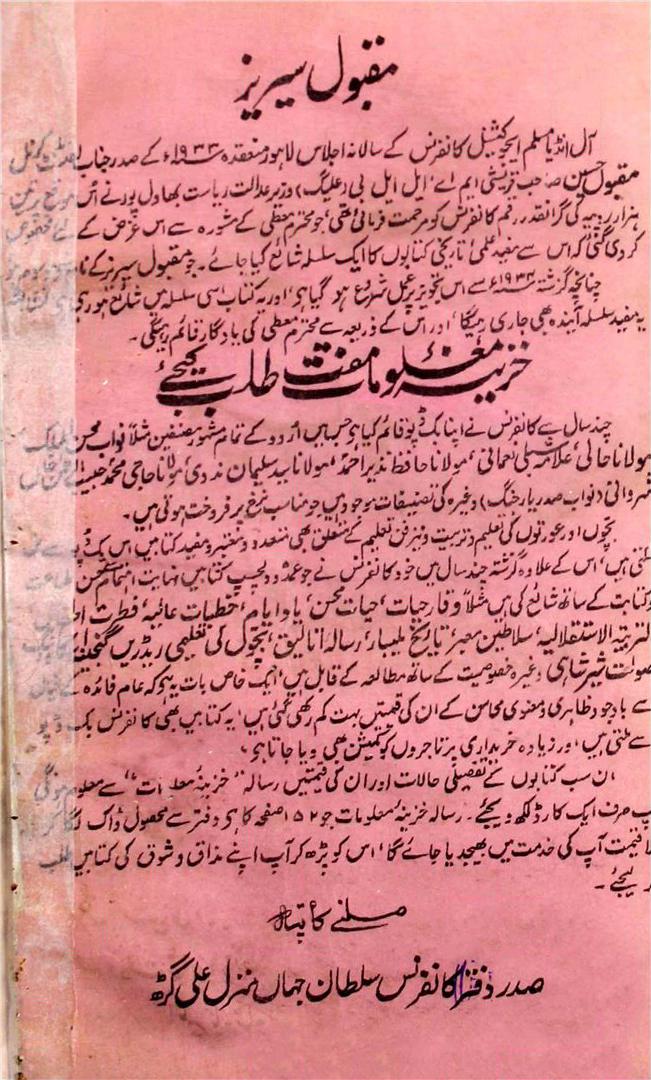 مقبول سیریز
آل انڈیا مسلم ایجوکیشنل کانفرنس کے سالانہ اجلاس لاہور منعقدہ ۱۹۳۳ء کے صدر جناب
مقبول حسین صاحب قریشی ایم اے، ایل ایل بی (علیگ) وزیر عدالت ریاست بھاولپور نے اس موقع پر تین
ہزار روپیہ کی گرانقدر رقم کانفرنس کو مرحمت فرمائی تھی، جو محترم معطی کے مشورہ سے اس غرض کے لئے مخصوص
کر دی گئی کہ اس سے مفید علمی، تاریخی کتابوں کا ایک سلسلہ شائع کیا جائے۔ جو مقبول سیریز کے نام سے موسوم ہو
چنانچہ گزشتہ ۱۹۳۴ء سے اس تجویز پر عمل شروع ہو گیا ہی، اور یہ کتاب اسی سلسلہ میں شائع ہو رہی ہی
یہ مفید سلسلہ آیندہ بھی جاری رہیگا، اور اس کے ذریعہ سے محترم معطی کی یادگار قائم رہیگی۔
خزینہ معلومات مفت طلب کیجئے
چند سال سے کانفرنس نے اپنا بک ڈپو قائم کیا ہی جس میں اردو کے تمام مشہور مصنفین مثلاً نواب محسن الملک
مولانا حالی، علامہ شبلی نعمانی، مولانا حافظ نذیر احمد، مولانا سید سلیمان ندوی، مولانا حاجی محمد حبیب الرحمن خاں
شروانی (نواب صدر یار جنگ) وغیرہ کی تصنیفات موجود ہیں جو مناسب نرخ پر فروخت ہوتی ہیں۔
بچوں اور عورتوں کی تعلیم و تربیت و نیز فن تعلیم کے متعلق بھی متعدد و معتبر و مفید کتابیں اس بک ڈپو سے مل
سکتی ہیں، اس کے علاوہ گزشتہ چند سال میں خود کانفرنس نے جو عمدہ و دلچسپ کتابیں نہایت اہتمام و حسن طباعت
و کتابت کے ساتھ شائع کی ہیں مثلاً وقار حیات، حیات محسن، یاد ایام، خطبات عالیہ، فطرت اطفال
التربیۃ الاستقلالیہ، سلاطین معبر، تاریخ ملیبار، رسالہ اتالیق، بچوں کی تعلیمی ریڈریں
صولت شیر شاہی وغیرہ خصوصیت کے ساتھ مطالعہ کے قابل ہیں، ایک خاص بات یہ ہی کہ عام فائدہ کے خیال
سے باوجود ظاہری و معنوی محاسن کے ان کی قیمتیں بہت کم رکھی گئی ہیں، یہ کتابیں بھی کانفرنس بک ڈپو
سے ملتی ہیں، اور زیادہ خریداری پر تاجروں کو کمیشن بھی دیا جاتا ہی،
ان سب کتابوں کے تفصیلی حالات اور ان کی قیمتیں رسالہ "خزینہ معلومات" سے معلوم ہونگی
آپ صرف ایک کارڈ لکھ دیجئے۔ رسالہ خزینہ معلومات جو ۱۵۲ صفحہ کا ہی دفتر سے محصول ڈاک لگا کر
بلا قیمت آپ کی خدمت میں بھیجدیا جائے گا، اس کو پڑھ کر آپ اپنے مذاق و شوق کی کتابیں طلب
کر لیجئے۔
ملنے کا پتہ
صدر دفتر کانفرنس سلطان جہاں منزل علی گڑھ